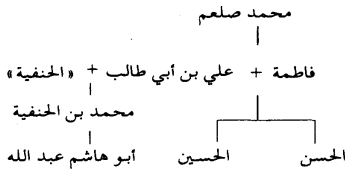 محمد صلعم
فاطمة + علي بن أبي طالب + «الحنفية»
محمد بن الحنفية
الحسن الحسين أبو هاشم عبد الله